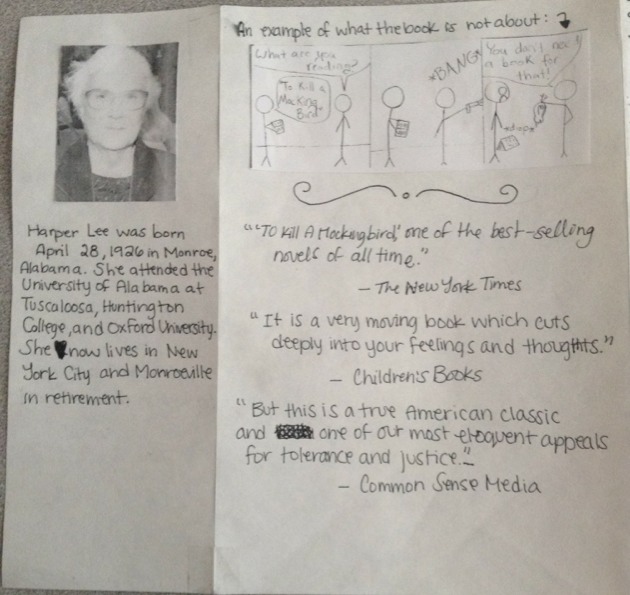 Harper Lee was born
April 28, 1926 in Monroe,
Alabama. She attended the
University of Alabama at
Tuscaloosa, Huntington
College, and Oxford University.
She now lives in New
York City and Monroeville
in retirement.
An example of what the book is not about:
What are you
reading?
"To Kill a
Mocking
Bird"
*BANG*
You don't need
a book for
that!
*drop*
"'To Kill A Mockingbird,' one of the best-selling
novels of all time."
- The New York Times
"It is a very moving book which cuts
deeply into your feelings and thoughts."
- Children's Books
"But this is a true American classic
and one of our most eloquent appeals
for tolerance and justice."
- Common Sense Media